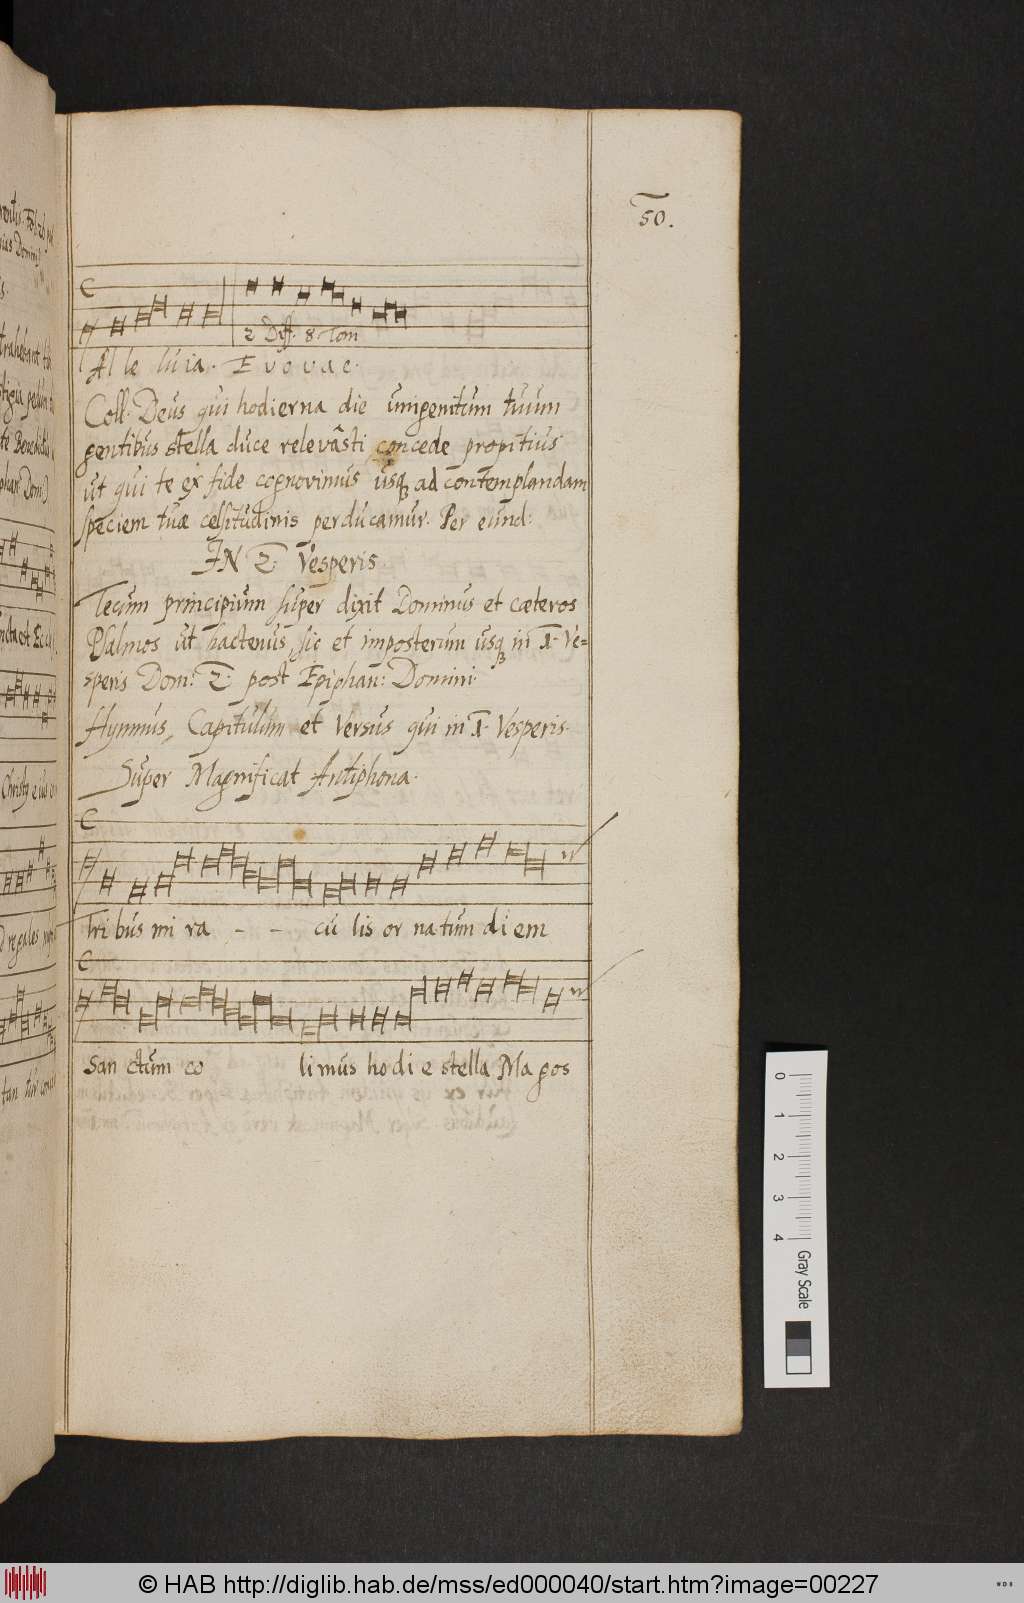 50.
2 Diff. 8. Ton
Al le lu ia. E v o v a e.
Coll. Deus qui hodierna die unigenitum tuum
gentibus stella duce relevâsti concede propitius
ut qui te ex fide cognovimus usq; ad contemplandam
speciem tuæ celsitudinis perducamur. Per eund:
IN 2. Vesperis
Tecum principium super dixit Dominus et cæteros
Psalmos ut hactenus, sic et imposterum usq; in 1. Ve=
speris Dom: 2. post Epiphan: Domini.
Hymnus, Capitulum et Versus qui in 1. Vesperis.
Super Magnificat Antiphona.
Tri bus mi ra - - cu lis or na tum di em
San ctum co limus ho di e stella Ma gos
0 1 2 3 4 Gray Scale
© HAB http://diglib.hab.de/mss/ed000040/start.htm?image=00227